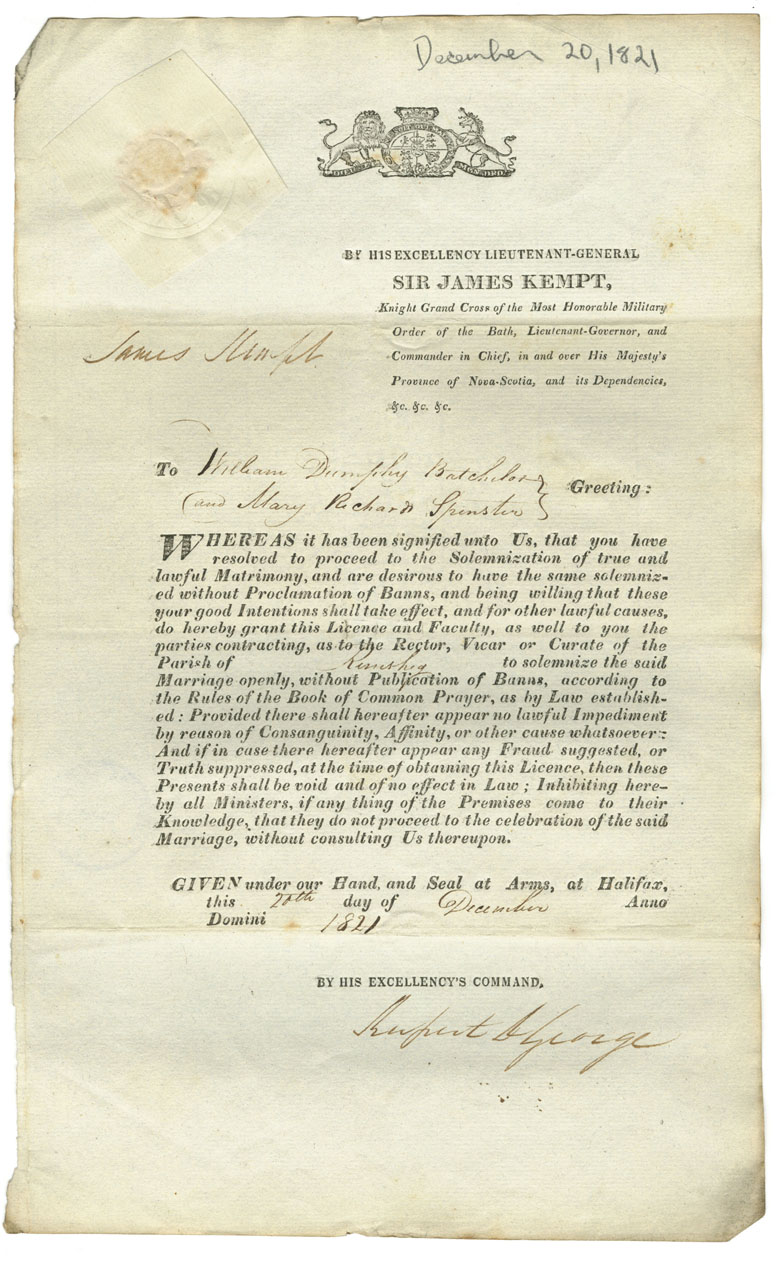 December 20, 1821
BY HIS EXCELLENCY LIEUTENANT-GENERAL
SIR JAMES KEMPT,
Knight Grand Cross of the Most Honorable Military
Order of the Bath, Lieutenant-Governor, and
Commander in Chief, in and over His Majesty's
Province of Nova-Scotia, and its Dependencies,
&c. &c. &c.
James Kempt
To William Dumphy Batchelor
(and Mary Richards Spinster } Greeting:
WHEREAS it has been signified unto Us, that you have
resolved to proceed to the Solemnization of true and
lawful Matrimony, and are desirous to have the same solemniz-
ed without Proclamation of Banns, and being willing that these
your good Intentions shall take effect, and for other lawful causes,
do hereby grant this Licence and Faculty, as well to you the
parties contracting, as to the Rector, Vicar or Curate of the
Parish of to solemnize the said
Marriage openly, without Publication of Banns, according to
the Rules of the Book of Common Prayer, as by Law establish-
ed: Provided there shall hereafter appear no lawful Impediment
by reason of Consanguinity, Affinity, or other cause whatsoever:
And if in case there hereafter appear any Fraud suggested, or
Truth suppressed, at the time of obtaining this Licence, then these
Presents shall be void and of no effect in Law; Inhibiting here-
by all Ministers, if any thing of the Premises come to their
Knowledge, that they do not proceed to the celebration of the said
Marriage, without consulting Us thereupon.
GIVEN under our Hand, and Seal at Arms, at Halifax,
this 20th day of December Anno
Domini 1821
BY HIS EXCELLENCY'S COMMAND,
Rupert D George